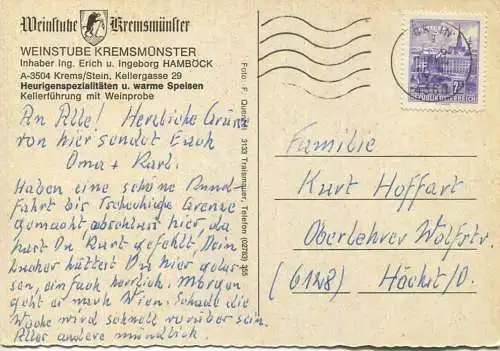 Weinstube Kremsmünster
WEINSTUBE KREMSMÜNSTER
Inhaber Ing. Erich u. Ingeborg HAMBÖCK
A-3504 Krems/Stein, Kellergasse 29
Heurigenspezialitäten u. warme Speisen
Kellerführung mit Weinprobe
An Alle! Herzliche Grüsse
von hier sendet Euch
Oma + Karl.
Haben eine schöne Rund-
fahrt bis Tschechische Grenze
gemacht, abschluss hier, da
hast Du, Kurt gefehlt, Dein
hättest Du hier gelas-
sen, einfach herrlich. Morgen
geht es nach Wien. Schade die
Woche wird schnell vorüber sein.
Alles andere mündlich.
Foto: F. 3133 Traismauer, Telefon (02783) 355
REPUBLIK ÖSTERREICH
Familie
Kurt Hoffart
Oberlehrer Wolfstr.
(6128) Höchst/O.